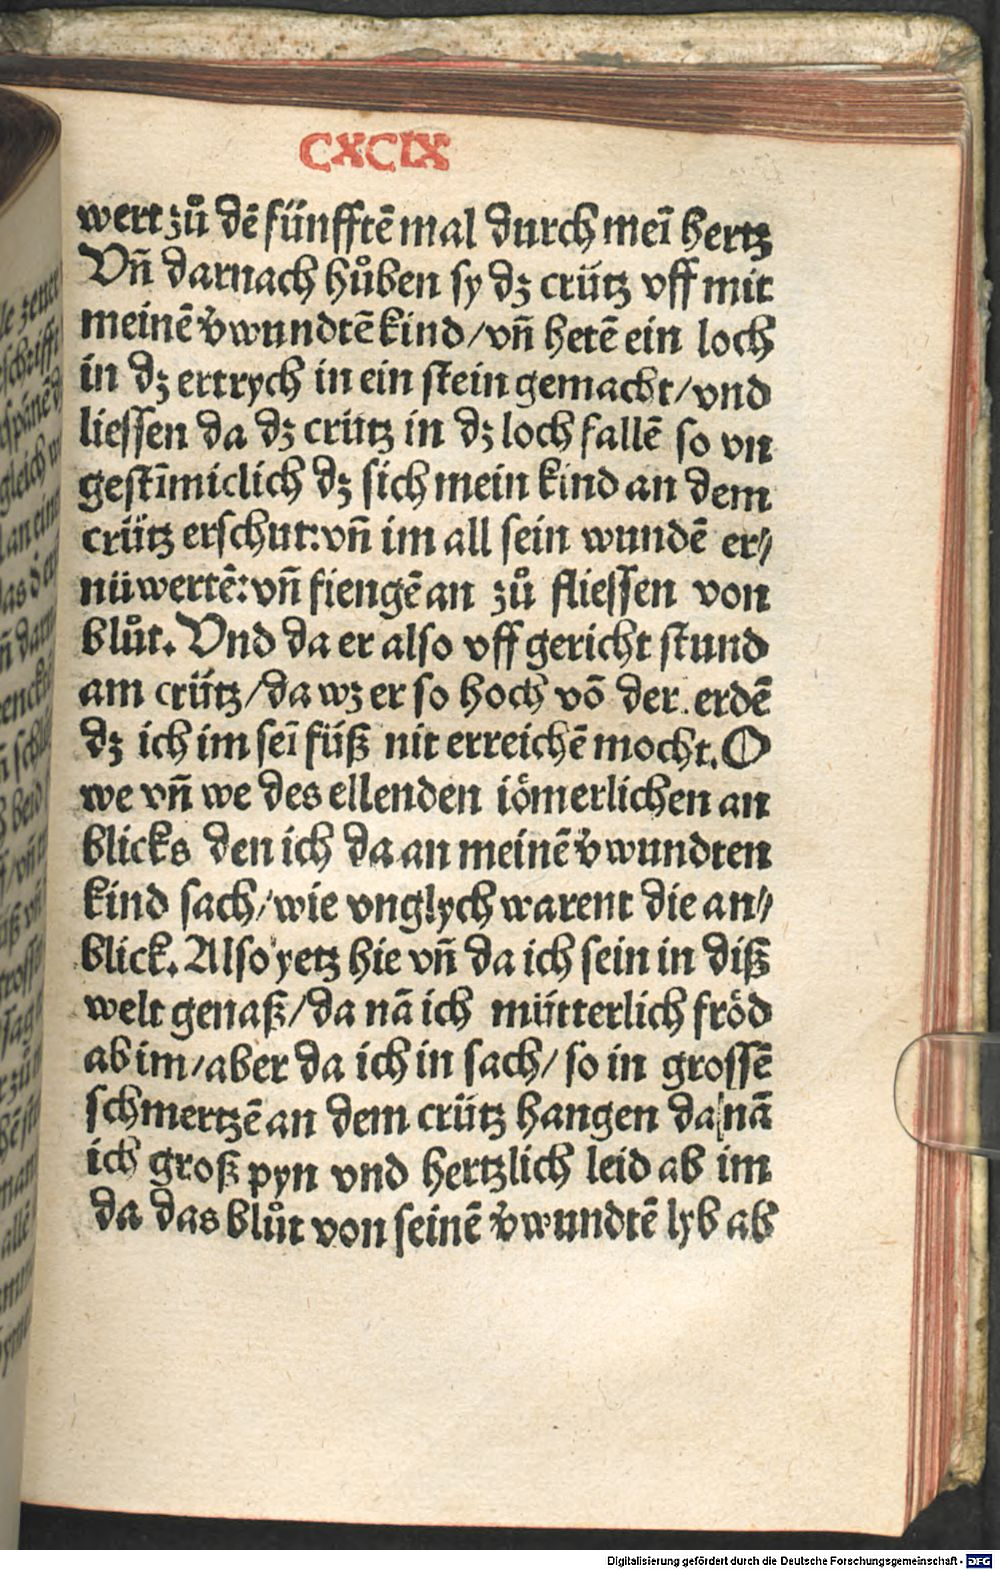 CXCIX
wert zů dē fünfftē mal durch meī hertz
Vn̄ darnach hůben sy dz crütz vff mit
meinē v̓wundtē kind/vn̄ hetē ein loch
in dz ertrych in ein stein gemacht/vnd
liessen da dz crütz in dz loch fallē so vn
gestīmiclich dz sich mein kind an dem
crütz erschut:vn̄ im all sein wundē er⸗
nüwertē:vn̄ fiengē an zů fliessen von
blůt. Vnd da er also vff gericht stund
am crütz/da wz er so hoch vō der erdē
dz ich im seī füß nit erreichē mocht. O
we vn̄ we des ellenden iömerlichen an
blicks den ich da an meinē v̓wundten
kind sach/wie vnglych warent die an⸗
blick. Also yetz hie vn̄ da ich sein in diß
welt genaß/da nā ich mütterlich fröd
ab im/aber da ich in sach/so in grossē
schmertzē an dem crütz hangen da nā
ich groß pyn vnd hertzlich leid ab im
da das blůt von seinē v̓wundtē lyb ab
Digitalisierung gefördert durch die Deutsche Forschungsgemeinschaft - DFG